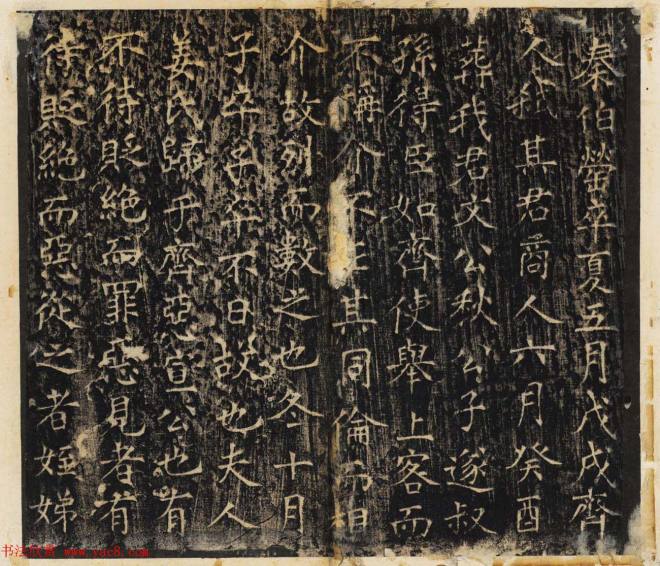 秦伯罃卒夏五月戊戌齊
人弒其君商人六月癸酉
葬我君文公秋公子遂叔
孫得臣如齊使舉上客而
不稱介不正其同倫而相
介故列而數之也冬十月
子卒子卒不日故也夫人
姜氏歸于齊惡宣公也有
不待貶絕而罪惡見者有
待貶絕而惡從之者姪娣
书法欣赏 www.yac8.com